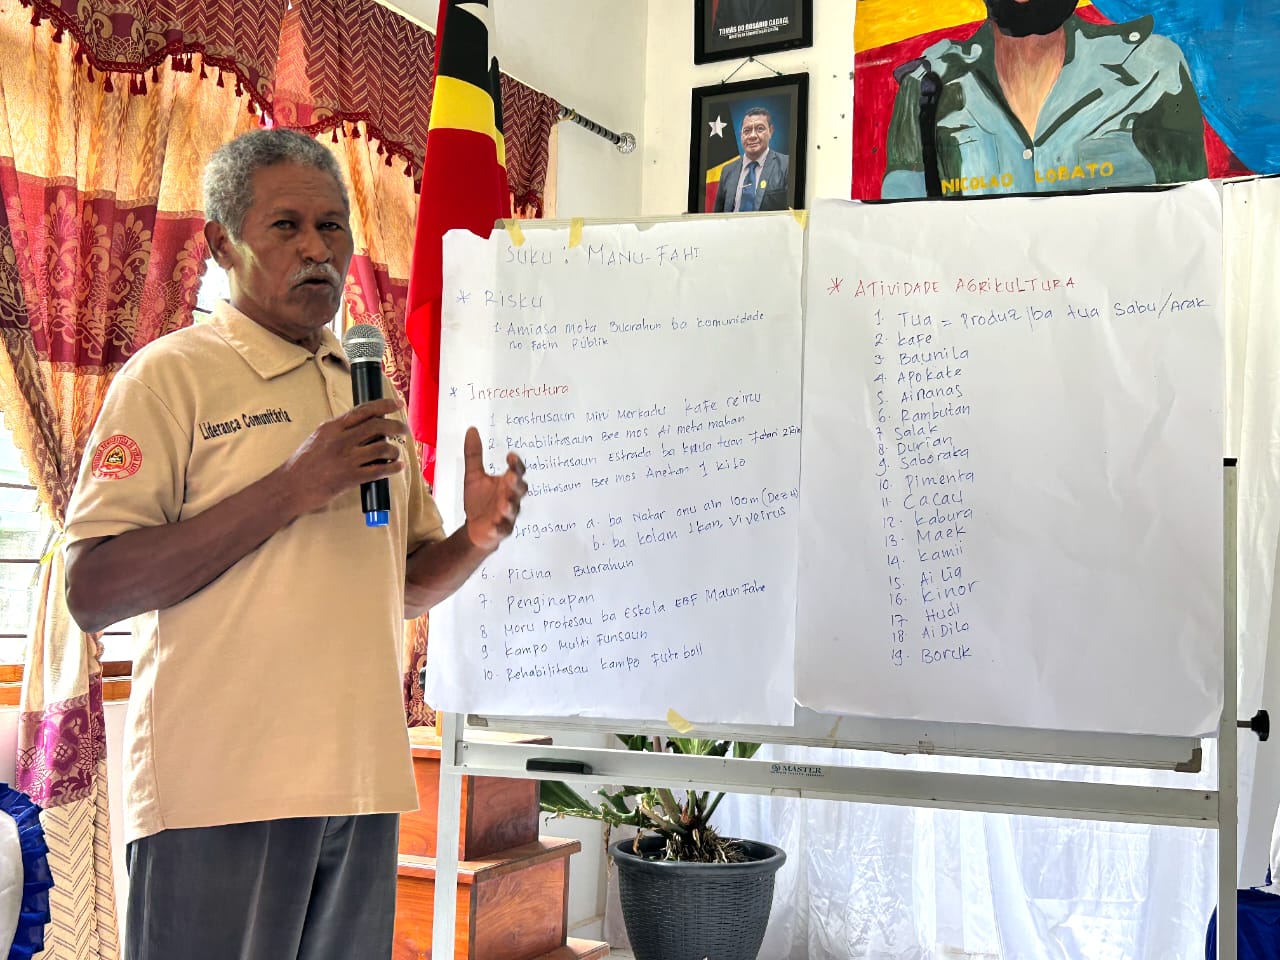 TOMÁS DO ROSÁRIO CABRAL
NICOLAU LOBATO
Liderança Comunitária
SUKU: MANU-FAHI
* Risku
1. Amiasa mota Buarahun ba komunidade
no Fatin Públik
* Infraestrutura
1 Konstrusaun Mini Merkadu Kafe
2. Rehabilitasaun Bee mos Ai meta mahan
3. Rehabilitasaun Estrada ba tuan
Bee mos Anetan 1 Kilo
Irigasaun a. ba Natar 100m
b. ba Kolam Ikan, Viveirus
6. Picina Buarahun
7. Penginapan
8 Moru Protesau ba Eskola EBF
9 Kampo Multi Funsaun
10. Rehabilitasau Kampo Futeboll
* ATIVIDADE AGRIKULTURA
1. Tua = Produz ba tua Sabu/Arak
2. Kafe
3. Baunila
4. Apokate
5. Ainanas
6. Rambutan
7 Salak
8. Durian
9. Saboraka
10. Pimenta
11. Cacau
12. Kabura
13. Maek
14. Kamii
15. Ai Lia
16. Kinor
17. Hudi
18. Ai Dila
19. Boruk
MASTER